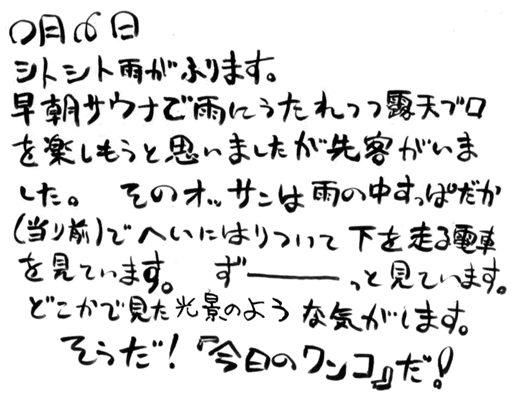 〇月〇日
シトシト雨がふります。
早朝サウナで雨にうたれつつ露天ブロ
を楽しもうと思いましたが先客がいま
した。 そのオッサンは雨の中すっぱだか
(当り前)でへいにはりついて下を走る電車
を見ています。 ず―――っと見ています。
どこかで見た光景のような気がします。
そうだ!『今日のワンコ』だ!